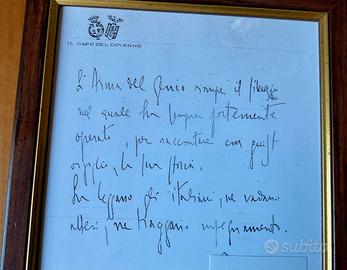 IL CAPO DEL GOVERNO
L'Arma del Genio rompe il silenzio
nel quale ha sempre fortemente
operato, per raccontare con giusto
orgoglio, la sua storia.
La leggano gli italiani, ne vadano
alteri, ne traggano insegnamento.
subito